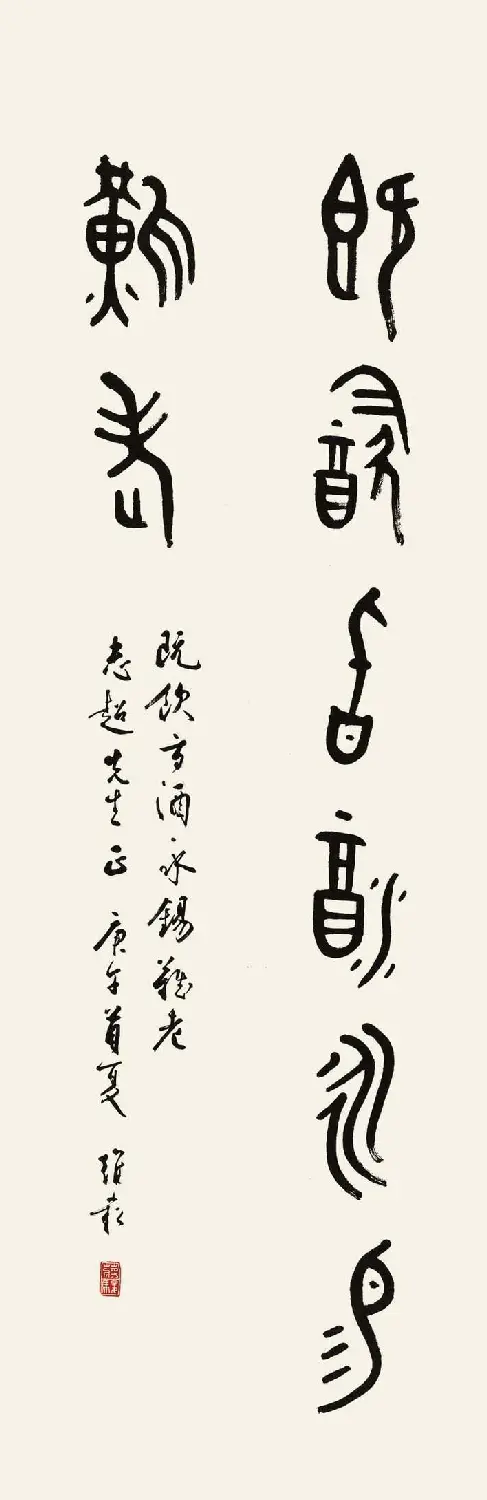 既飲旨酒永易
難老
既飲旨酒永錫難老
志超先生正 庚午首夏 維崧